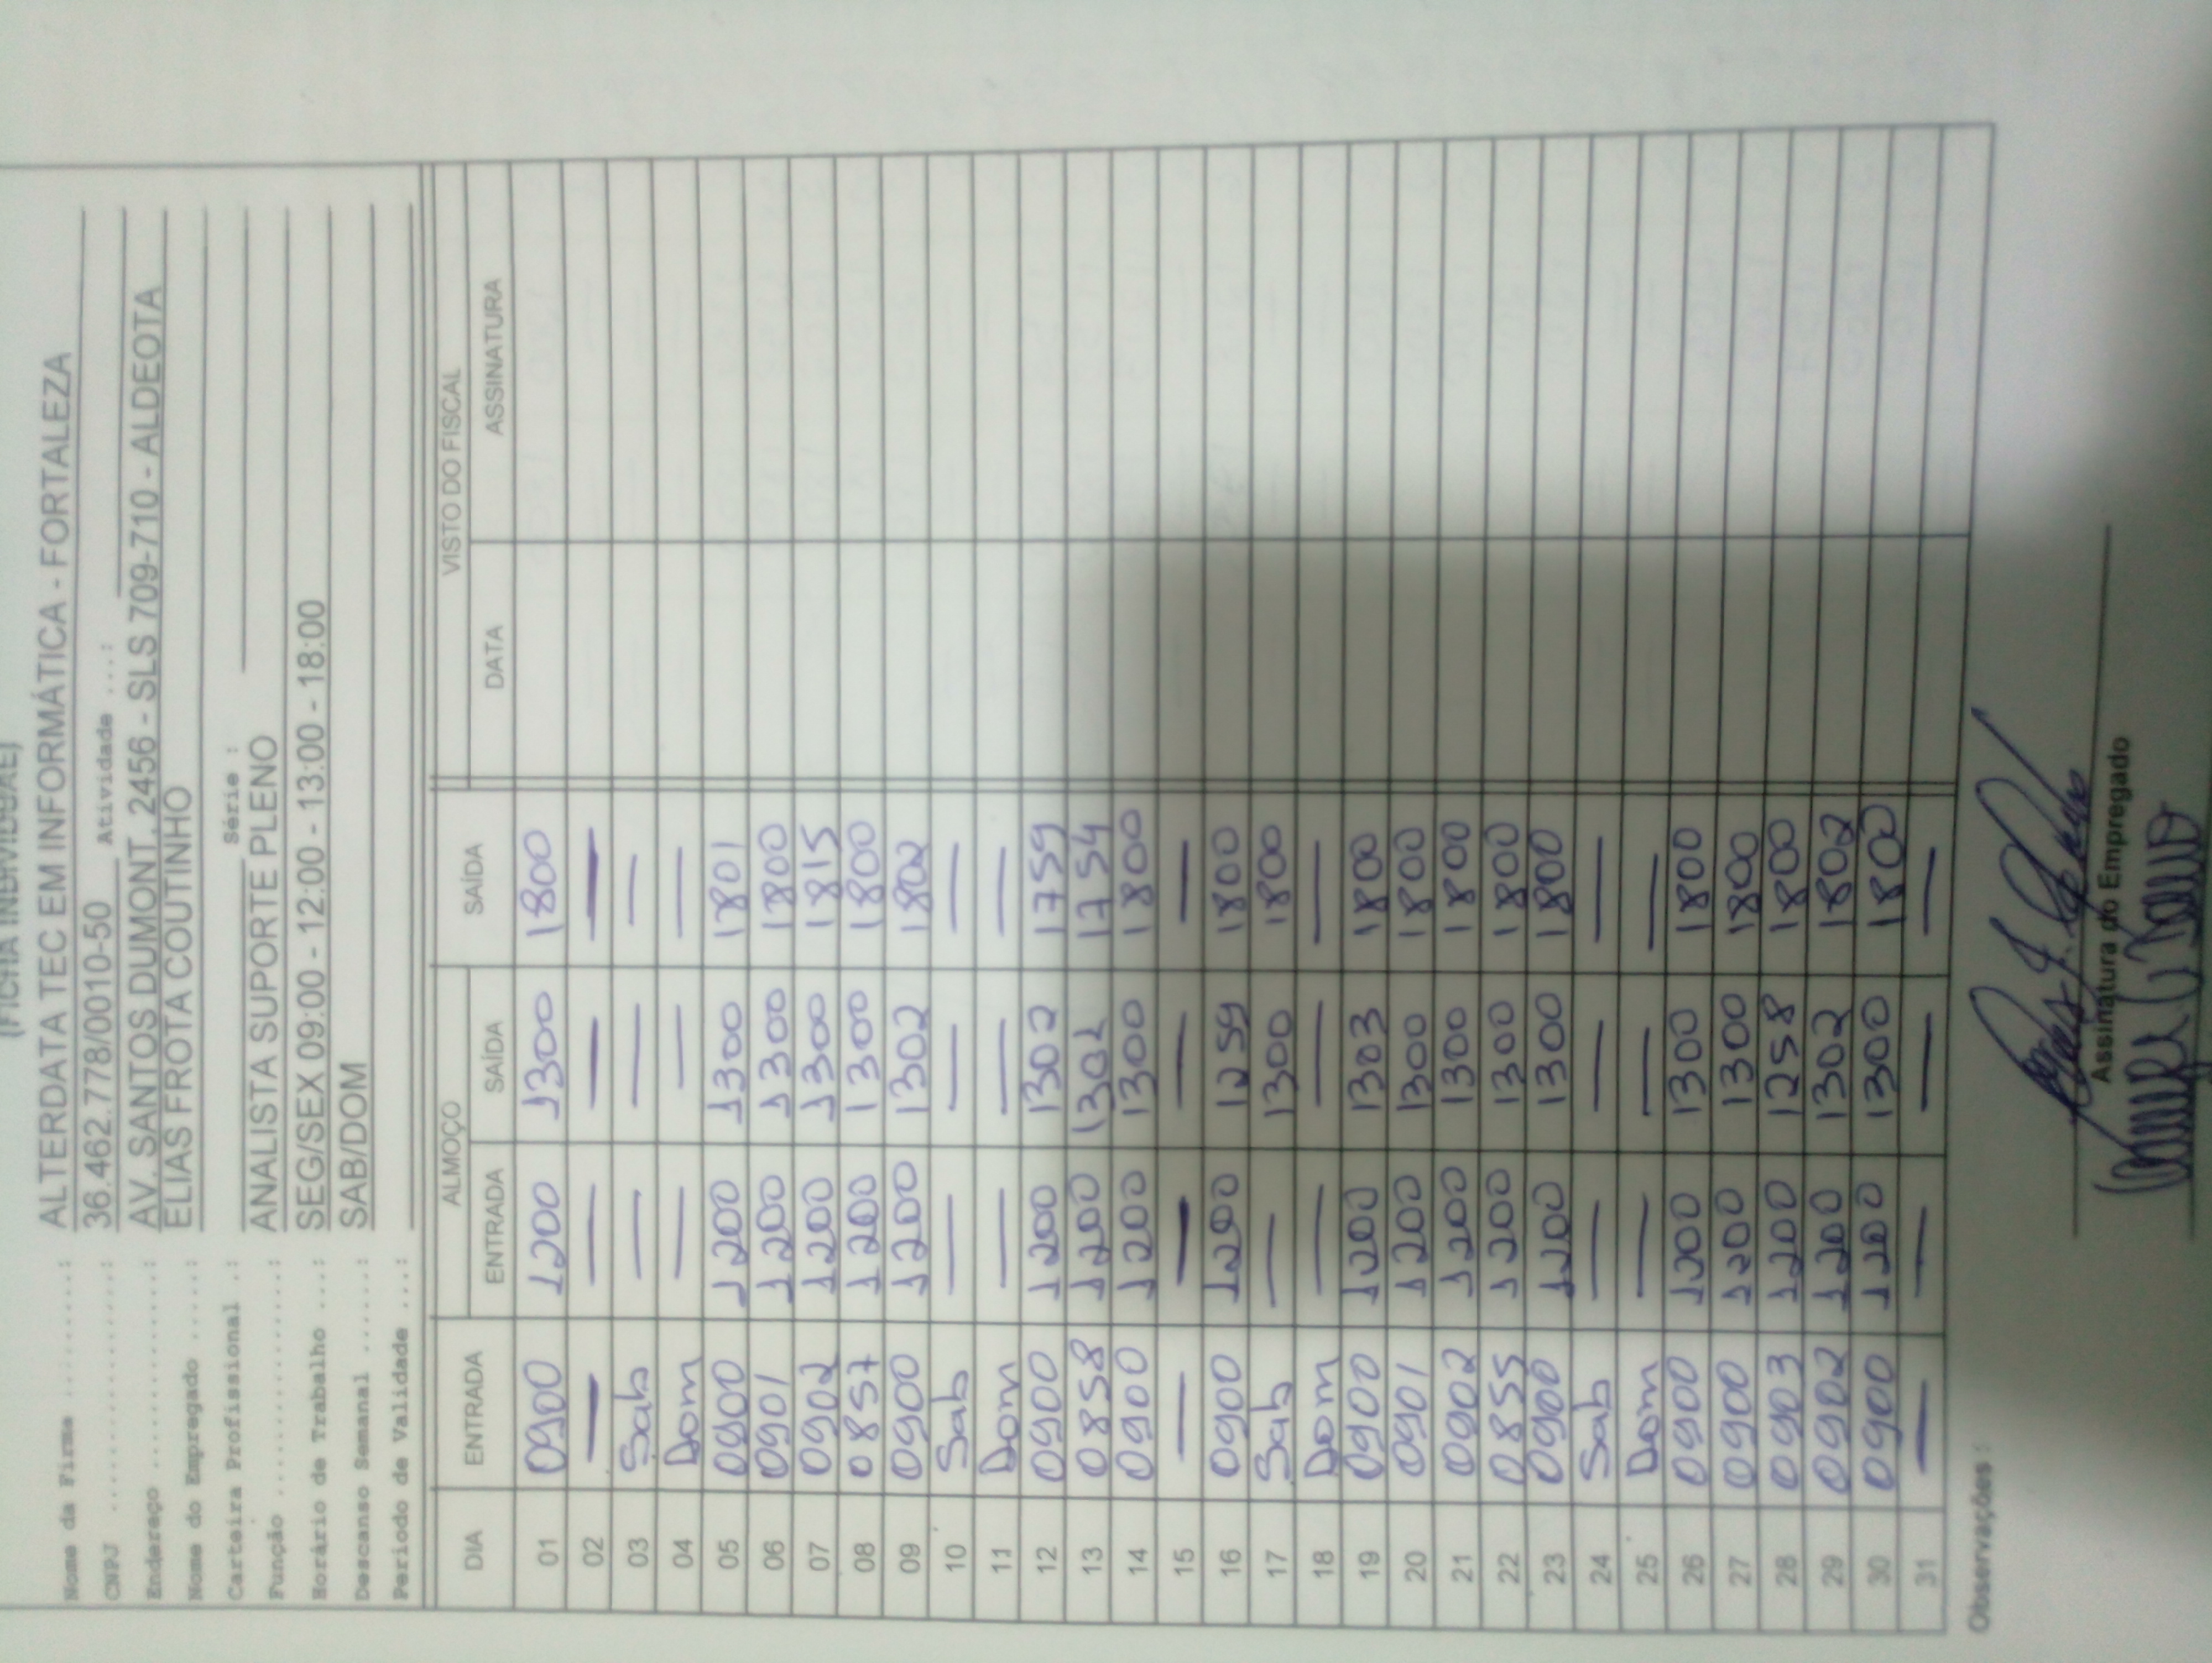 (FICHA INDIVIDUAL)
Nome da Firma .........: ALTERDATA TEC EM INFORMÁTICA - FORTALEZA
CNPJ ................: 36.462.778/0010-50 Atividade ...:
Endereço ..............: AV. SANTOS DUMONT, 2456 - SLS 709-710 - ALDEOTA
Nome do Empregado .....: ELIAS FROTA COUTINHO
Carteira Profissional .: Série :
Função ................: ANALISTA SUPORTE PLENO
Horário de Trabalho ...: SEG/SEX 09:00 - 12:00 - 13:00 - 18:00
Descanso Semanal ......: SAB/DOM
Periodo de Validade ...:
DIA ENTRADA ALMOÇO SAÍDA VISTO DO FISCAL
ENTRADA SAÍDA DATA ASSINATURA
01 0900 1200 1300 1800
02 — — — —
03 Sab — — —
04 Dom — — —
05 0900 1200 1300 1801
06 0901 1200 1300 1800
07 0902 1200 1300 1815
08 0857 1200 1300 1800
09 0900 1200 1302 1802
10 Sab — — —
11 Dom — — —
12 0900 1200 1302 1759
13 0858 1200 1301 1754
14 0900 1200 1300 1800
15 — — — —
16 0900 1200 1259 1800
17 Sab — 1300 1800
18 Dom — — —
19 0900 1200 1303 1800
20 0901 1200 1300 1800
21 0902 1200 1300 1800
22 0855 1200 1300 1800
23 0900 1200 1300 1800
24 Sab — — —
25 Dom — — —
26 0900 1200 1300 1800
27 0900 1200 1300 1800
28 0903 1200 1258 1800
29 0902 1200 1302 1802
30 0900 1200 1300 1800
31 — — — —
Observações :
Assinatura do Empregado